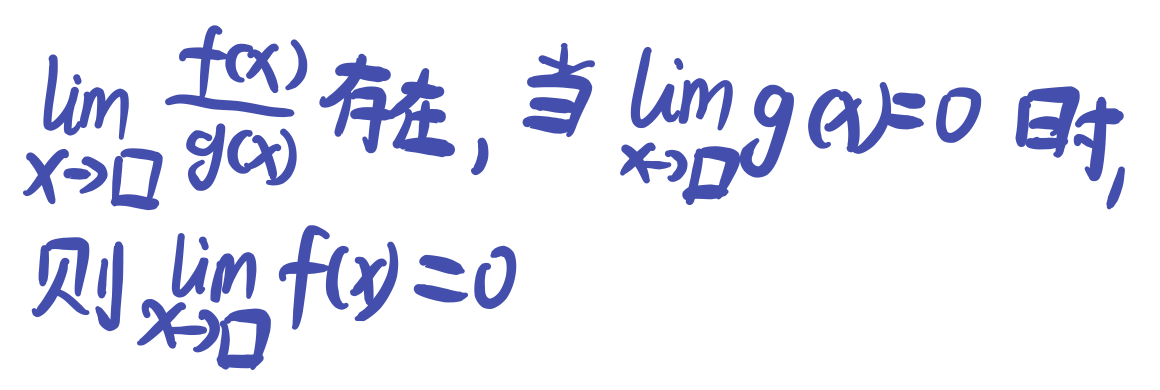 lim x→□ f(x)/g(x) 存在, 当 lim x→□ g(x)=0 时,
则 lim x→□ f(x)=0